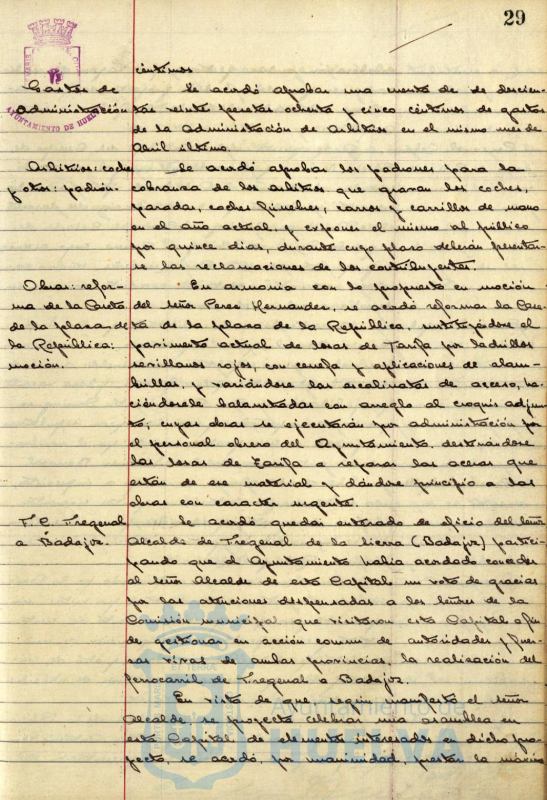 29
céntimos
Gastos de
Administración
Se acordó aprobar una cuenta de de doscien-
tas veinte pesetas ochenta y cinco céntimos de gastos
de la Administración de Arbitrios en el mismo mes de
Abril último.
Arbitrios: coches
y otros: padrón.
Se acordó aprobar los padrones para la
cobranza de los arbitrios que gravan los coches,
paradas, coches fúnebres, carros y carrillos de mano
en el año actual, y exponer el mismo al público
por quince dias, durante cuyo plazo deberán presentar-
se las reclamaciones de los contribuyentes.
Obras: refor-
ma de la Caseta
de la plaza de
la República:
moción.
En armonia con lo propuesto en moción
del señor Perez Hernandez, se acordó reformar la Case-
ta de la plaza de la República, sustituyéndose el
pavimento actual de losas de Tarifa por ladrillos
sevillanos rojos, con cenefa y aplicaciones de alam-
brillas, y variándose las escalinatas de acceso, ha-
ciéndosele balaustradas con arreglo al croquis adjun-
to; cuyas obras se ejecutarán por administración por
el personal obrero del Ayuntamiento, destinándose
las losas de Tarifa a reparar las aceras que
están de ese material y dándose principio a las
obras con caracter urgente.
F. C. Fregenal
a Badajoz.
Se acordó quedar enterado de oficio del señor
Alcalde de Fregenal de la Sierra (Badajoz) partici-
pando que el Ayuntamiento habia acordado conceder
al señor Alcalde de esta Capital un voto de gracias
por las atenciones dispensadas a los señores de la
Comisión municipal que visitaron esta Capital a fin
de gestionar, en acción comun de autoridades y fuer-
zas vivas de ambas provincias, la realización del
ferrocarril de Fregenal a Badajoz.
En vista de que según manifestó el señor
Alcalde, se proyecta celebrar una asamblea en
esta Capital, de elementos interesados en dicho pro-
yecto, se acordó, por unanimidad, prestar la máxima
AYUNTAMIENTO DE HUELVA
Ayuntamiento de
HUELVA